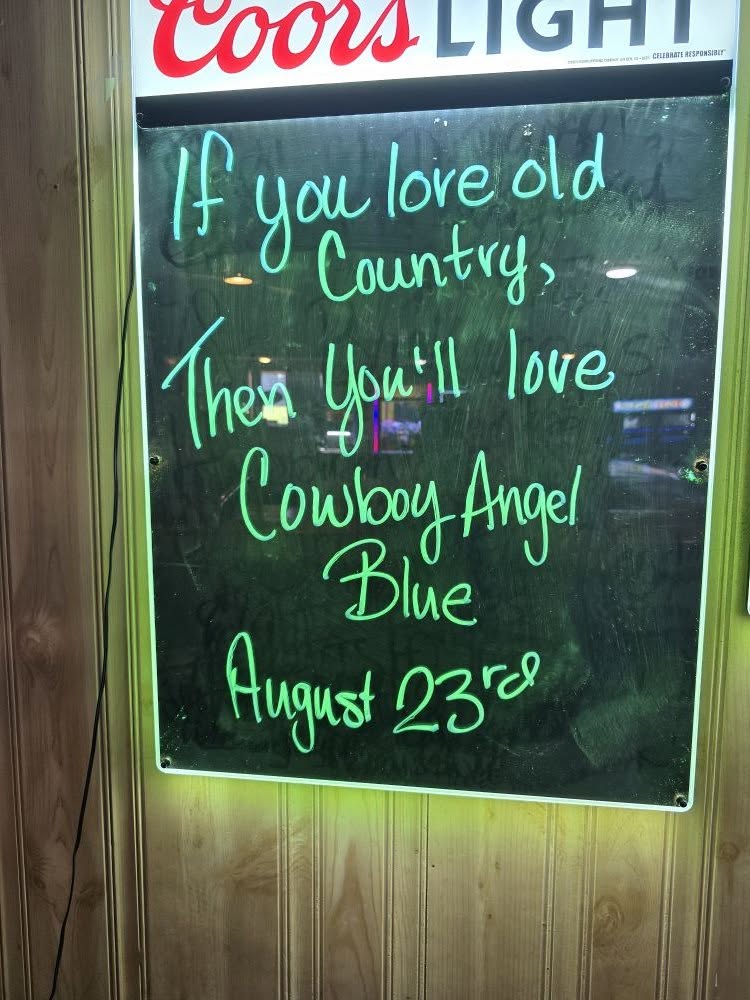 Coors LIGHT
CELEBRATE RESPONSIBLY
If you love old
Country,
Then You'll love
Cowboy Angel
Blue
August 23rd